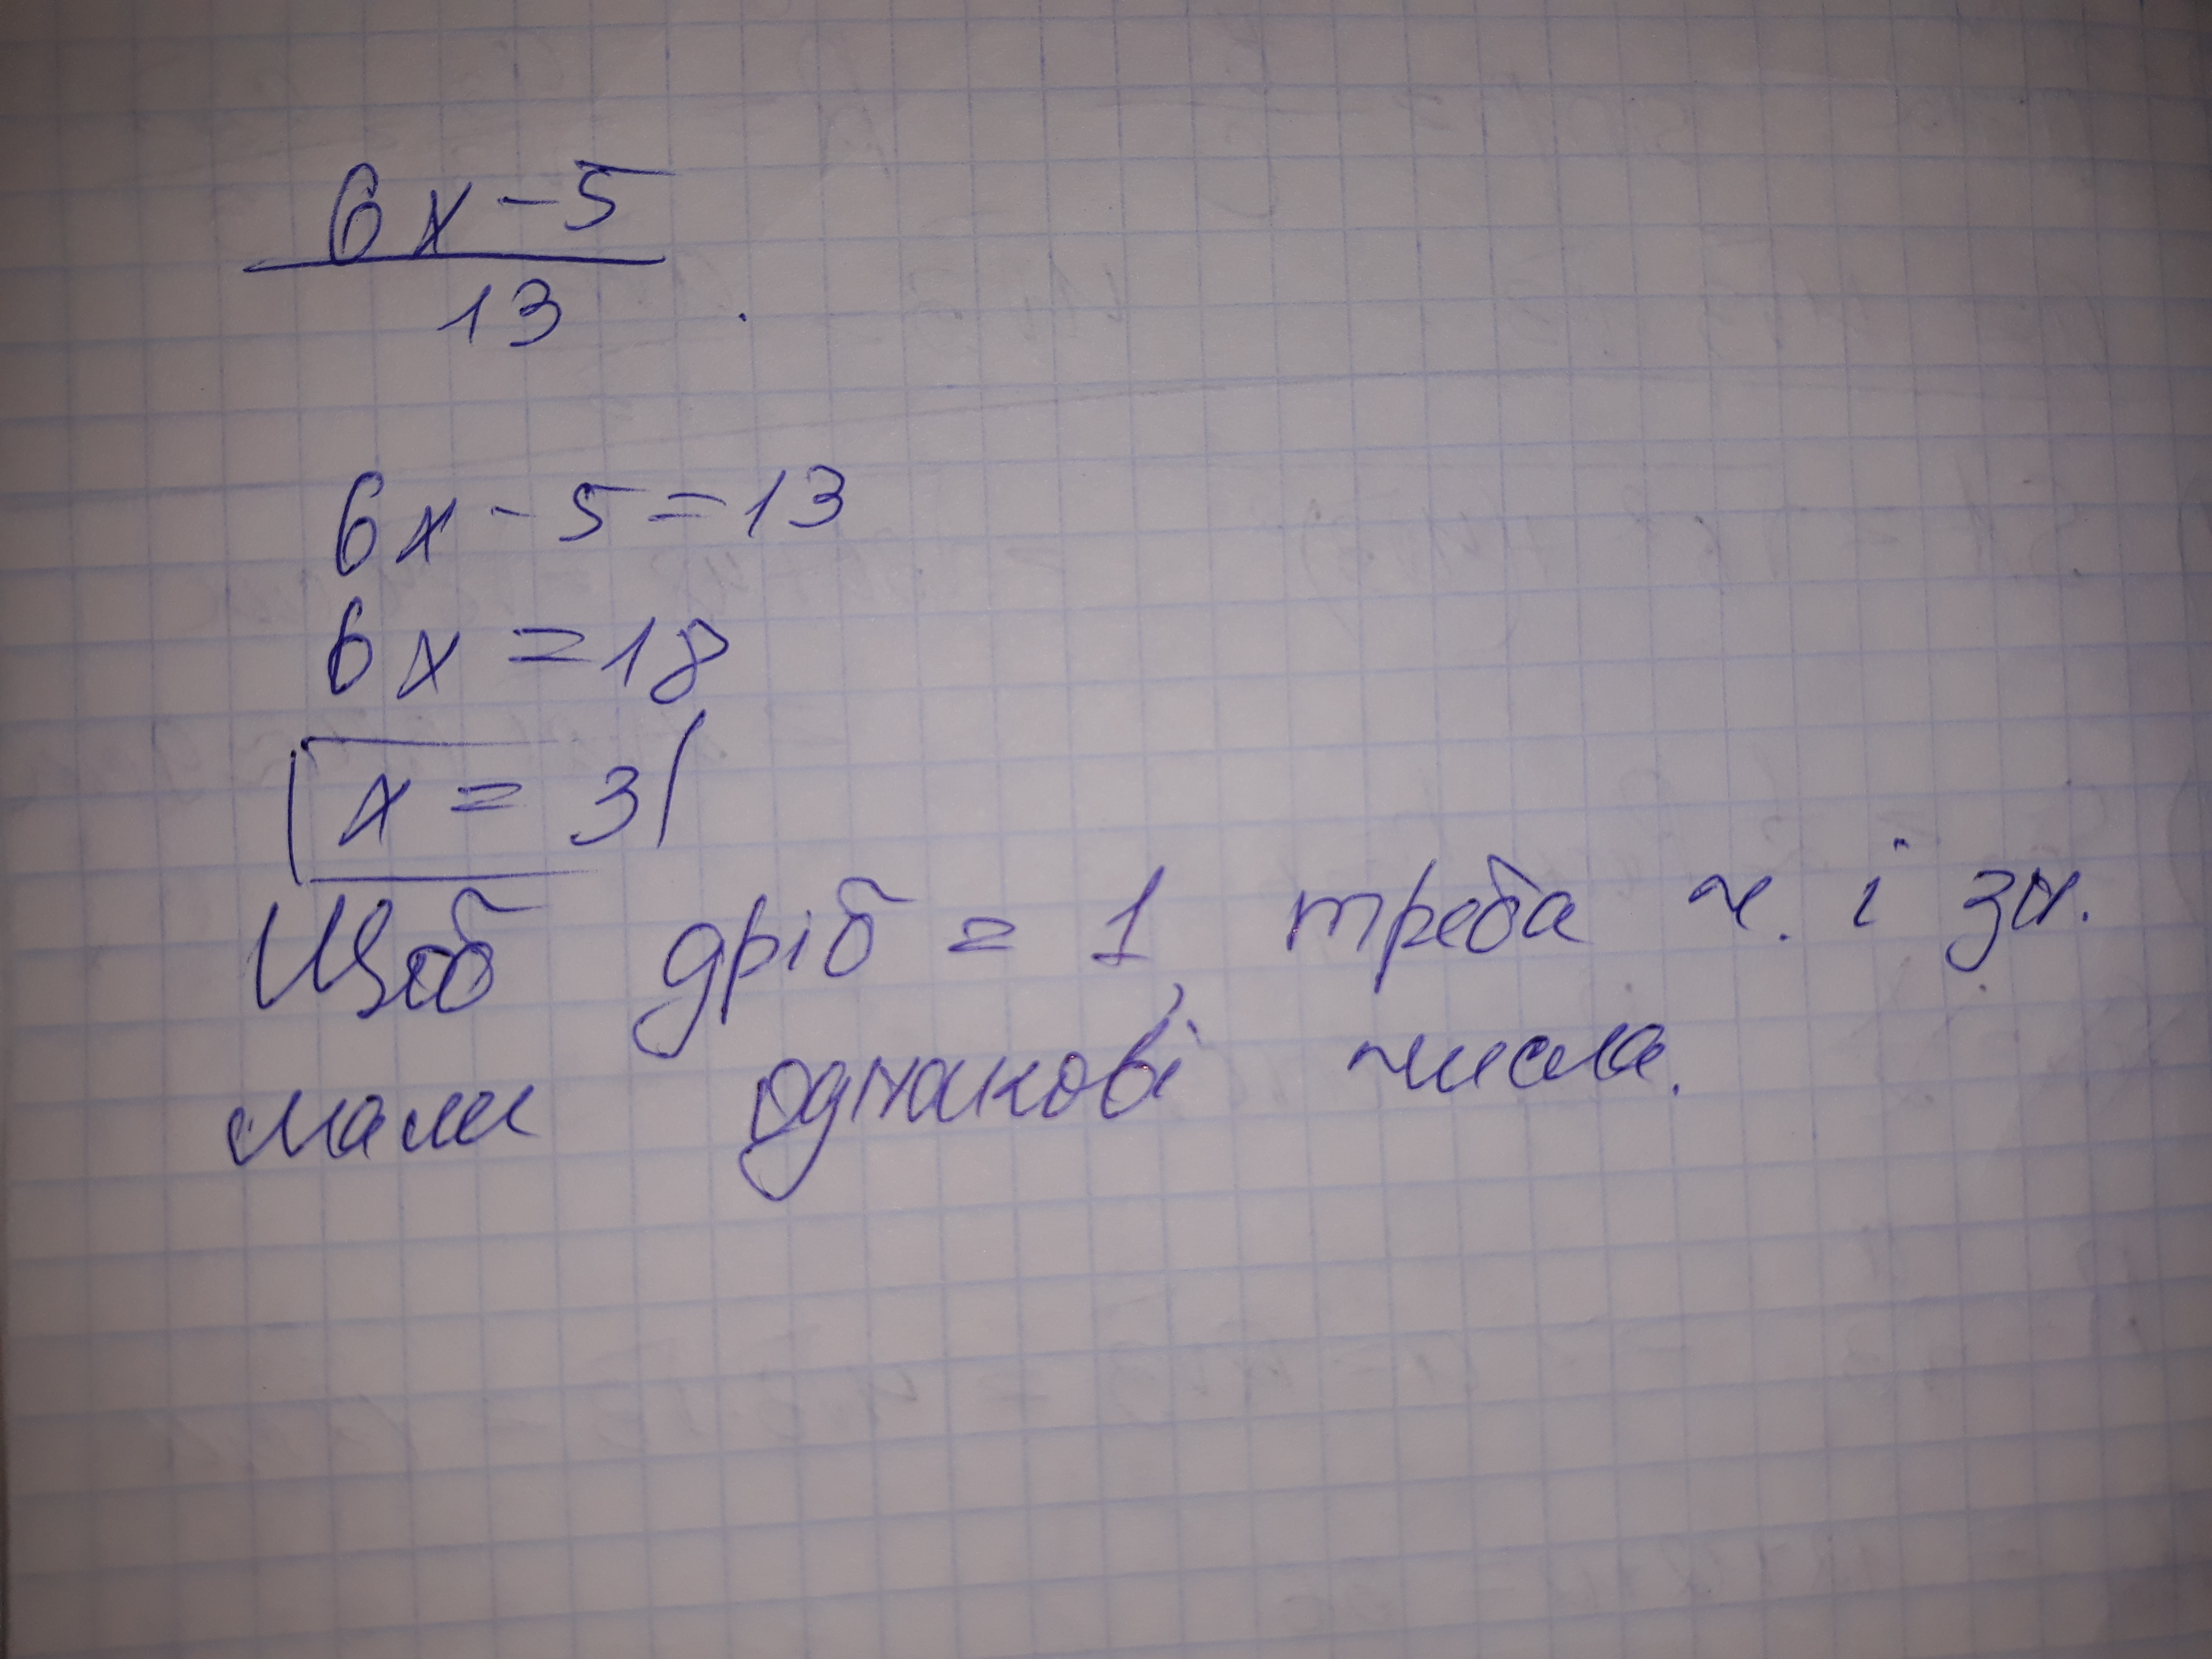 6x-5
13
6x-5=13
6x=18
x=3
Щоб дріб = 1, треба ч. і зн.
мали однакові числа.